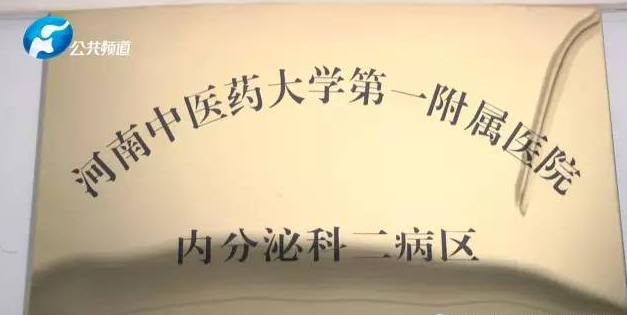 公共频道
河南中医药大学第一附属医院
内分泌科二病区